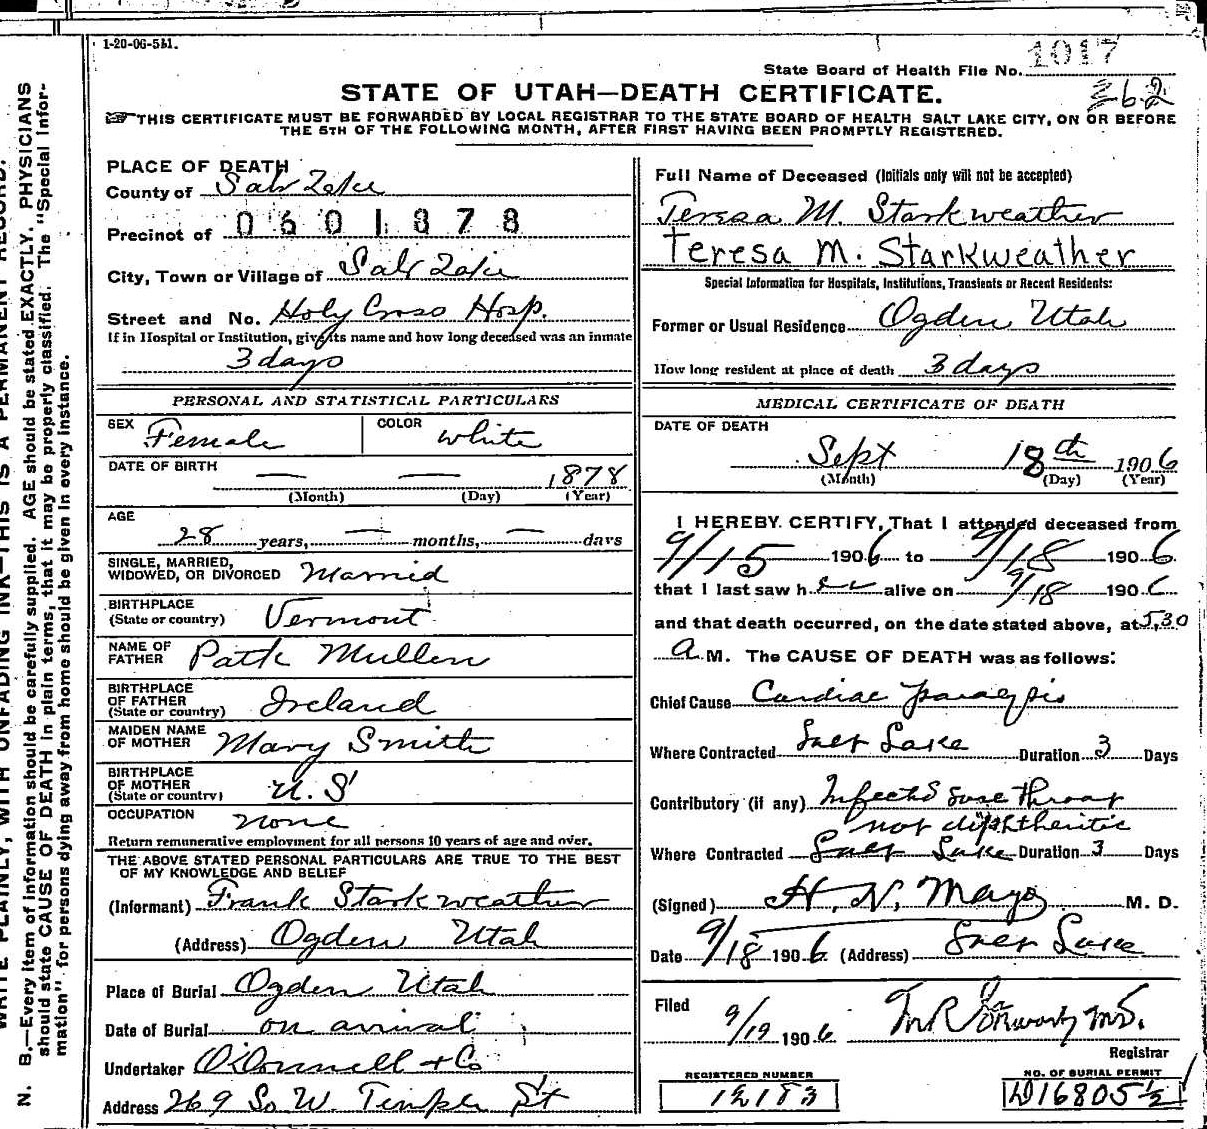 1-20-06-5M.
1017
State Board of Health File No.
362
STATE OF UTAH—DEATH CERTIFICATE.
THIS CERTIFICATE MUST BE FORWARDED BY LOCAL REGISTRAR TO THE STATE BOARD OF HEALTH SALT LAKE CITY, ON OR BEFORE
THE 5TH OF THE FOLLOWING MONTH, AFTER FIRST HAVING BEEN PROMPTLY REGISTERED.
PLACE OF DEATH
County of Salt Lake
Precinct of 0601878
City, Town or Village of Salt Lake
Street and No. Holy Cross Hosp.
If in Hospital or Institution, give its name and how long deceased was an inmate
3 days
PERSONAL AND STATISTICAL PARTICULARS
SEX Female COLOR White
DATE OF BIRTH — — 1878
(Month) (Day) (Year)
AGE
28 years, — months, — days
SINGLE, MARRIED,
WIDOWED, OR DIVORCED Married
BIRTHPLACE
(State or country) Vermont
NAME OF
FATHER Patk Mullen
BIRTHPLACE
OF FATHER
(State or country) Ireland
MAIDEN NAME
OF MOTHER Mary Smith
BIRTHPLACE
OF MOTHER
(State or country) U.S
OCCUPATION none
Return remunerative employment for all persons 10 years of age and over.
THE ABOVE STATED PERSONAL PARTICULARS ARE TRUE TO THE BEST
OF MY KNOWLEDGE AND BELIEF
(Informant) Frank Starkweather
(Address) Ogden Utah
Place of Burial Ogden Utah
Date of Burial on arrival
Undertaker O'Donnell & Co
Address 269 So W. Temple St
Full Name of Deceased (Initials only will not be accepted)
Teresa M. Starkweather
Teresa M. Starkweather
Special Information for Hospitals, Institutions, Transients or Recent Residents:
Former or Usual Residence Ogden Utah
How long resident at place of death 3 days
MEDICAL CERTIFICATE OF DEATH
DATE OF DEATH
Sept 18th 1906
(Month) (Day) (Year)
I HEREBY CERTIFY, That I attended deceased from
9/15 1906 to 9/18 1906
that I last saw her alive on 9/18 1906
and that death occurred, on the date stated above, at 5.30
A.M. The CAUSE OF DEATH was as follows:
Chief Cause Cardiac paralysis
Where Contracted Salt Lake Duration 3 Days
Contributory (if any) Infected sore throat
not diphtheritic
Where Contracted Salt Lake Duration 3 Days
(Signed) H. N. Mayo M. D.
Date 9/18 1906 (Address) Salt Lake
Filed 9/19 1906
Registrar
REGISTERED NUMBER
12183
NO. OF BURIAL PERMIT
D16805½
WRITE PLAINLY, WITH UNFADING INK—THIS IS A PERMANENT RECORD.
N. B.—Every item of information should be carefully supplied. AGE should be stated EXACTLY. PHYSICIANS
should state CAUSE OF DEATH in plain terms, that it may be properly classified. The "Special Infor-
mation" for persons dying away from home should be given in every instance.